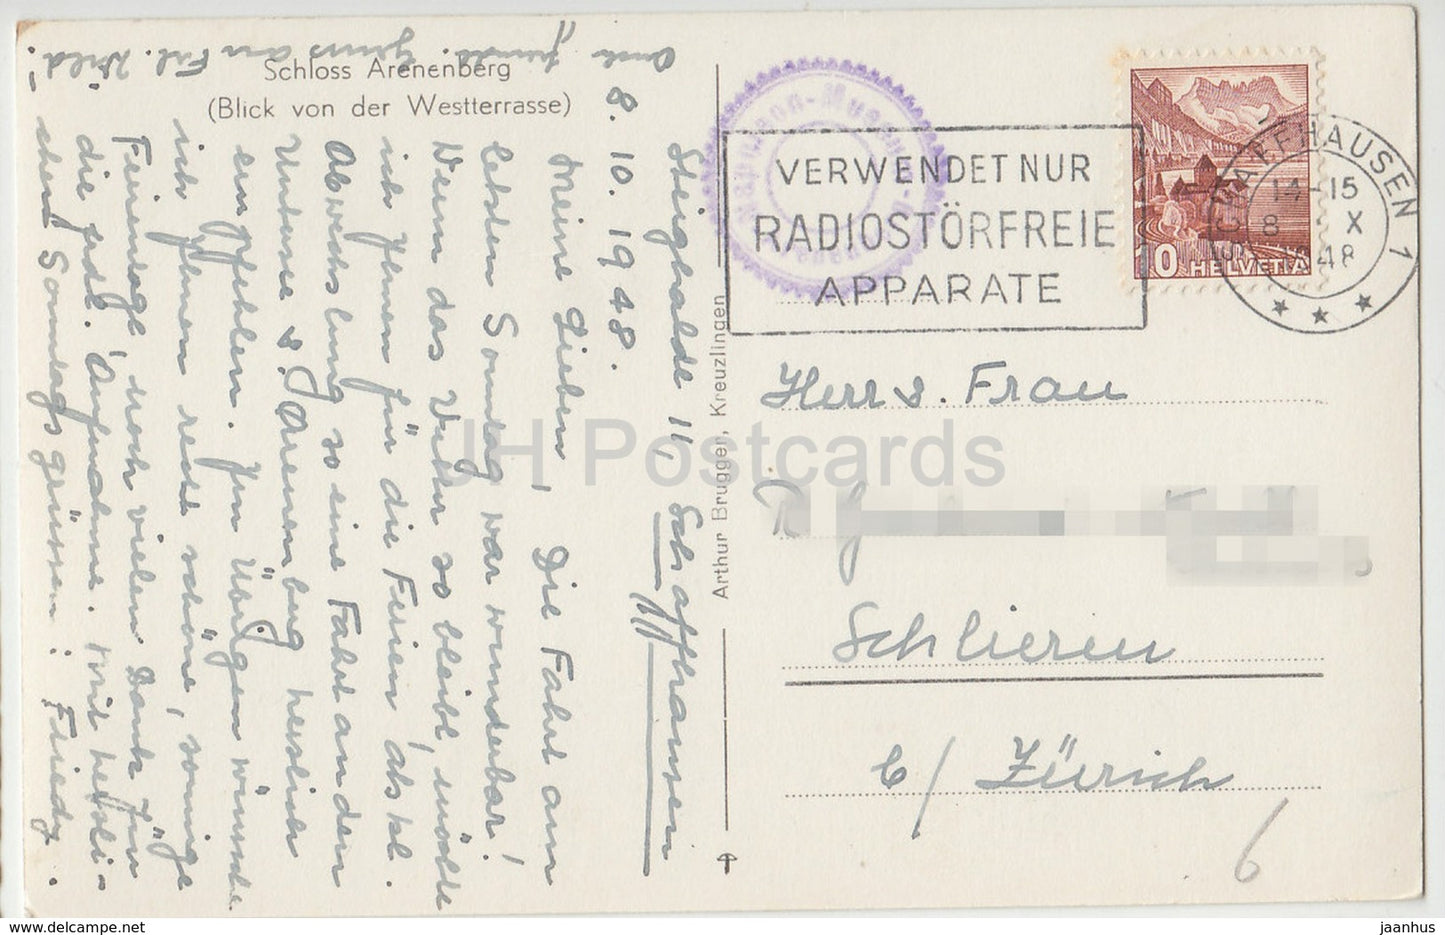 Schloss Arenenberg
(Blick von der Westterrasse)
Steighalde 11, Schaffhausen
8. 10. 1948.
Meine Lieben, Die Fahrt am
letzten Sonntag war wunderbar!
Wenn das Wetter so bleibt, möchte
ich Ihnen für die Ferien als kl.
Abwechslung so eine Fahrt an den
Untersee & Arenenberg herzlich
empfehlen. Im Übrigen wünsche
ich Ihnen recht schöne, sonnige
Ferientage, noch vielen Dank für
die fredl. Aufnahme. Mit herzli-
chen Sonntagsgrüssen: Friedy.
Auch freundl. Gruss an Frl. Wild!
Arthur Brugger, Kreuzlingen
VERWENDET NUR
RADIOSTÖRFREIE
APPARATE
SCHAFFHAUSEN 1
14-15
8 X
1948
10 HELVETIA
Herr & Frau
Schlieren
b/ Zürich
6
JH Postcards
www.hippostcard.com
jaanhus